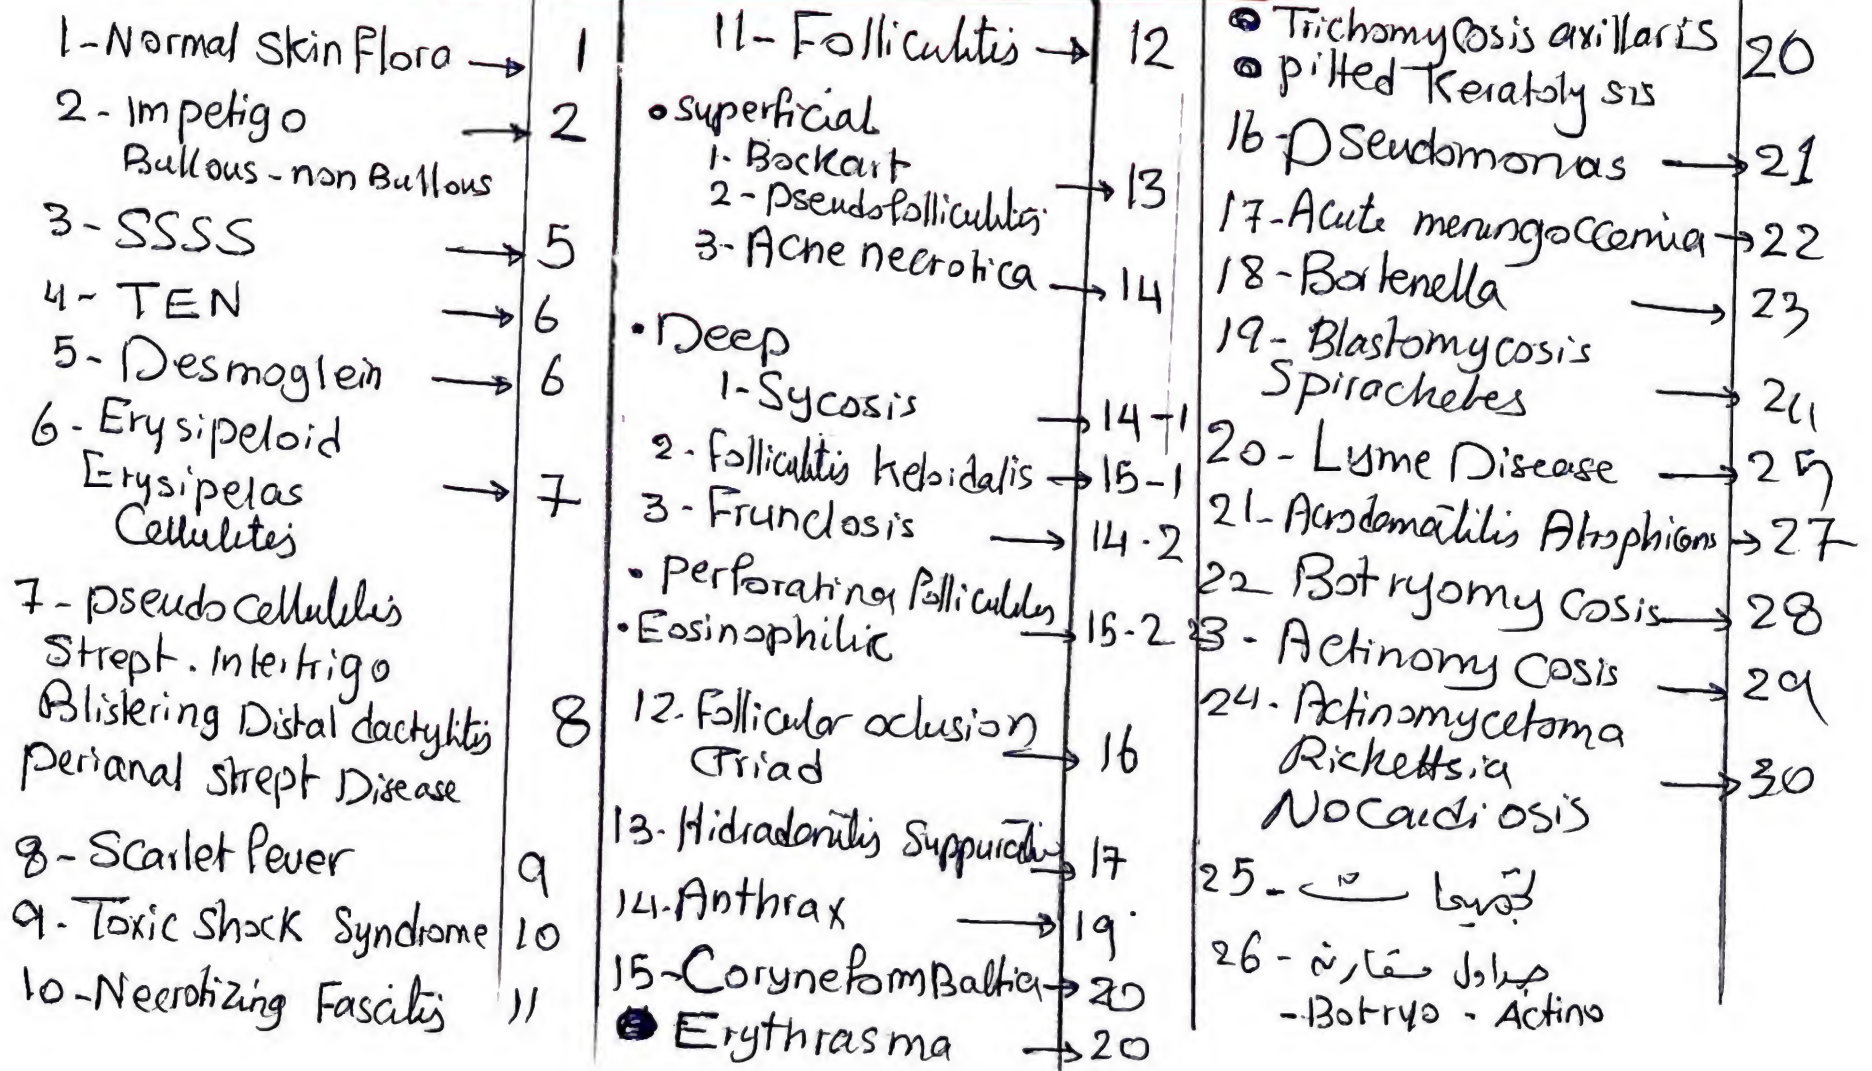 1-Normal Skin Flora → 1
2- Impetigo → 2
Bullous-non Bullous
3- SSSS → 5
4- TEN → 6
5- Desmoglein → 6
6- Erysipeloid
Erysipelas → 7
Cellulites
7- pseudocellulitis
Strept. Intertrigo
Blistering Distal dactylitis 8
perianal strept Disease
8- Scarlet fever 9
9- Toxic Shock Syndrome 10
10-Necrotizing Fascitis 11
11- Folliculitis → 12
• superficial
1- Bockart
2- Pseudofolliculitis → 13
3- Acne necrotica → 14
• Deep
1- Sycosis → 14-1
2- folliculitis keloidalis → 15-1
3- Frunclosis → 14-2
• perforating folliculitis
• Eosinophilic → 15-2
12- Follicular oclusion
Triad → 16
13- Hidradenitis Suppurativ → 17
14- Anthrax → 19
15- Coryneform Baltica → 20
• Erythrasma → 20
• Trichomycosis axillaris 20
• pitted Keratolysis
16- Pseudomonas → 21
17- Acute meningoccemia → 22
18- Bartenella → 23
19- Blastomycosis
Spirachetes → 24
20- Lyme Disease → 25
21- Acrodamatitis Atrophicans → 27
22- Botryomycosis → 28
23- Actinomycosis → 29
24- Actinomycetoma
Rickettsia → 30
Nocardiosis
25-
26- جداول مقارنة
-Botryo - Actino